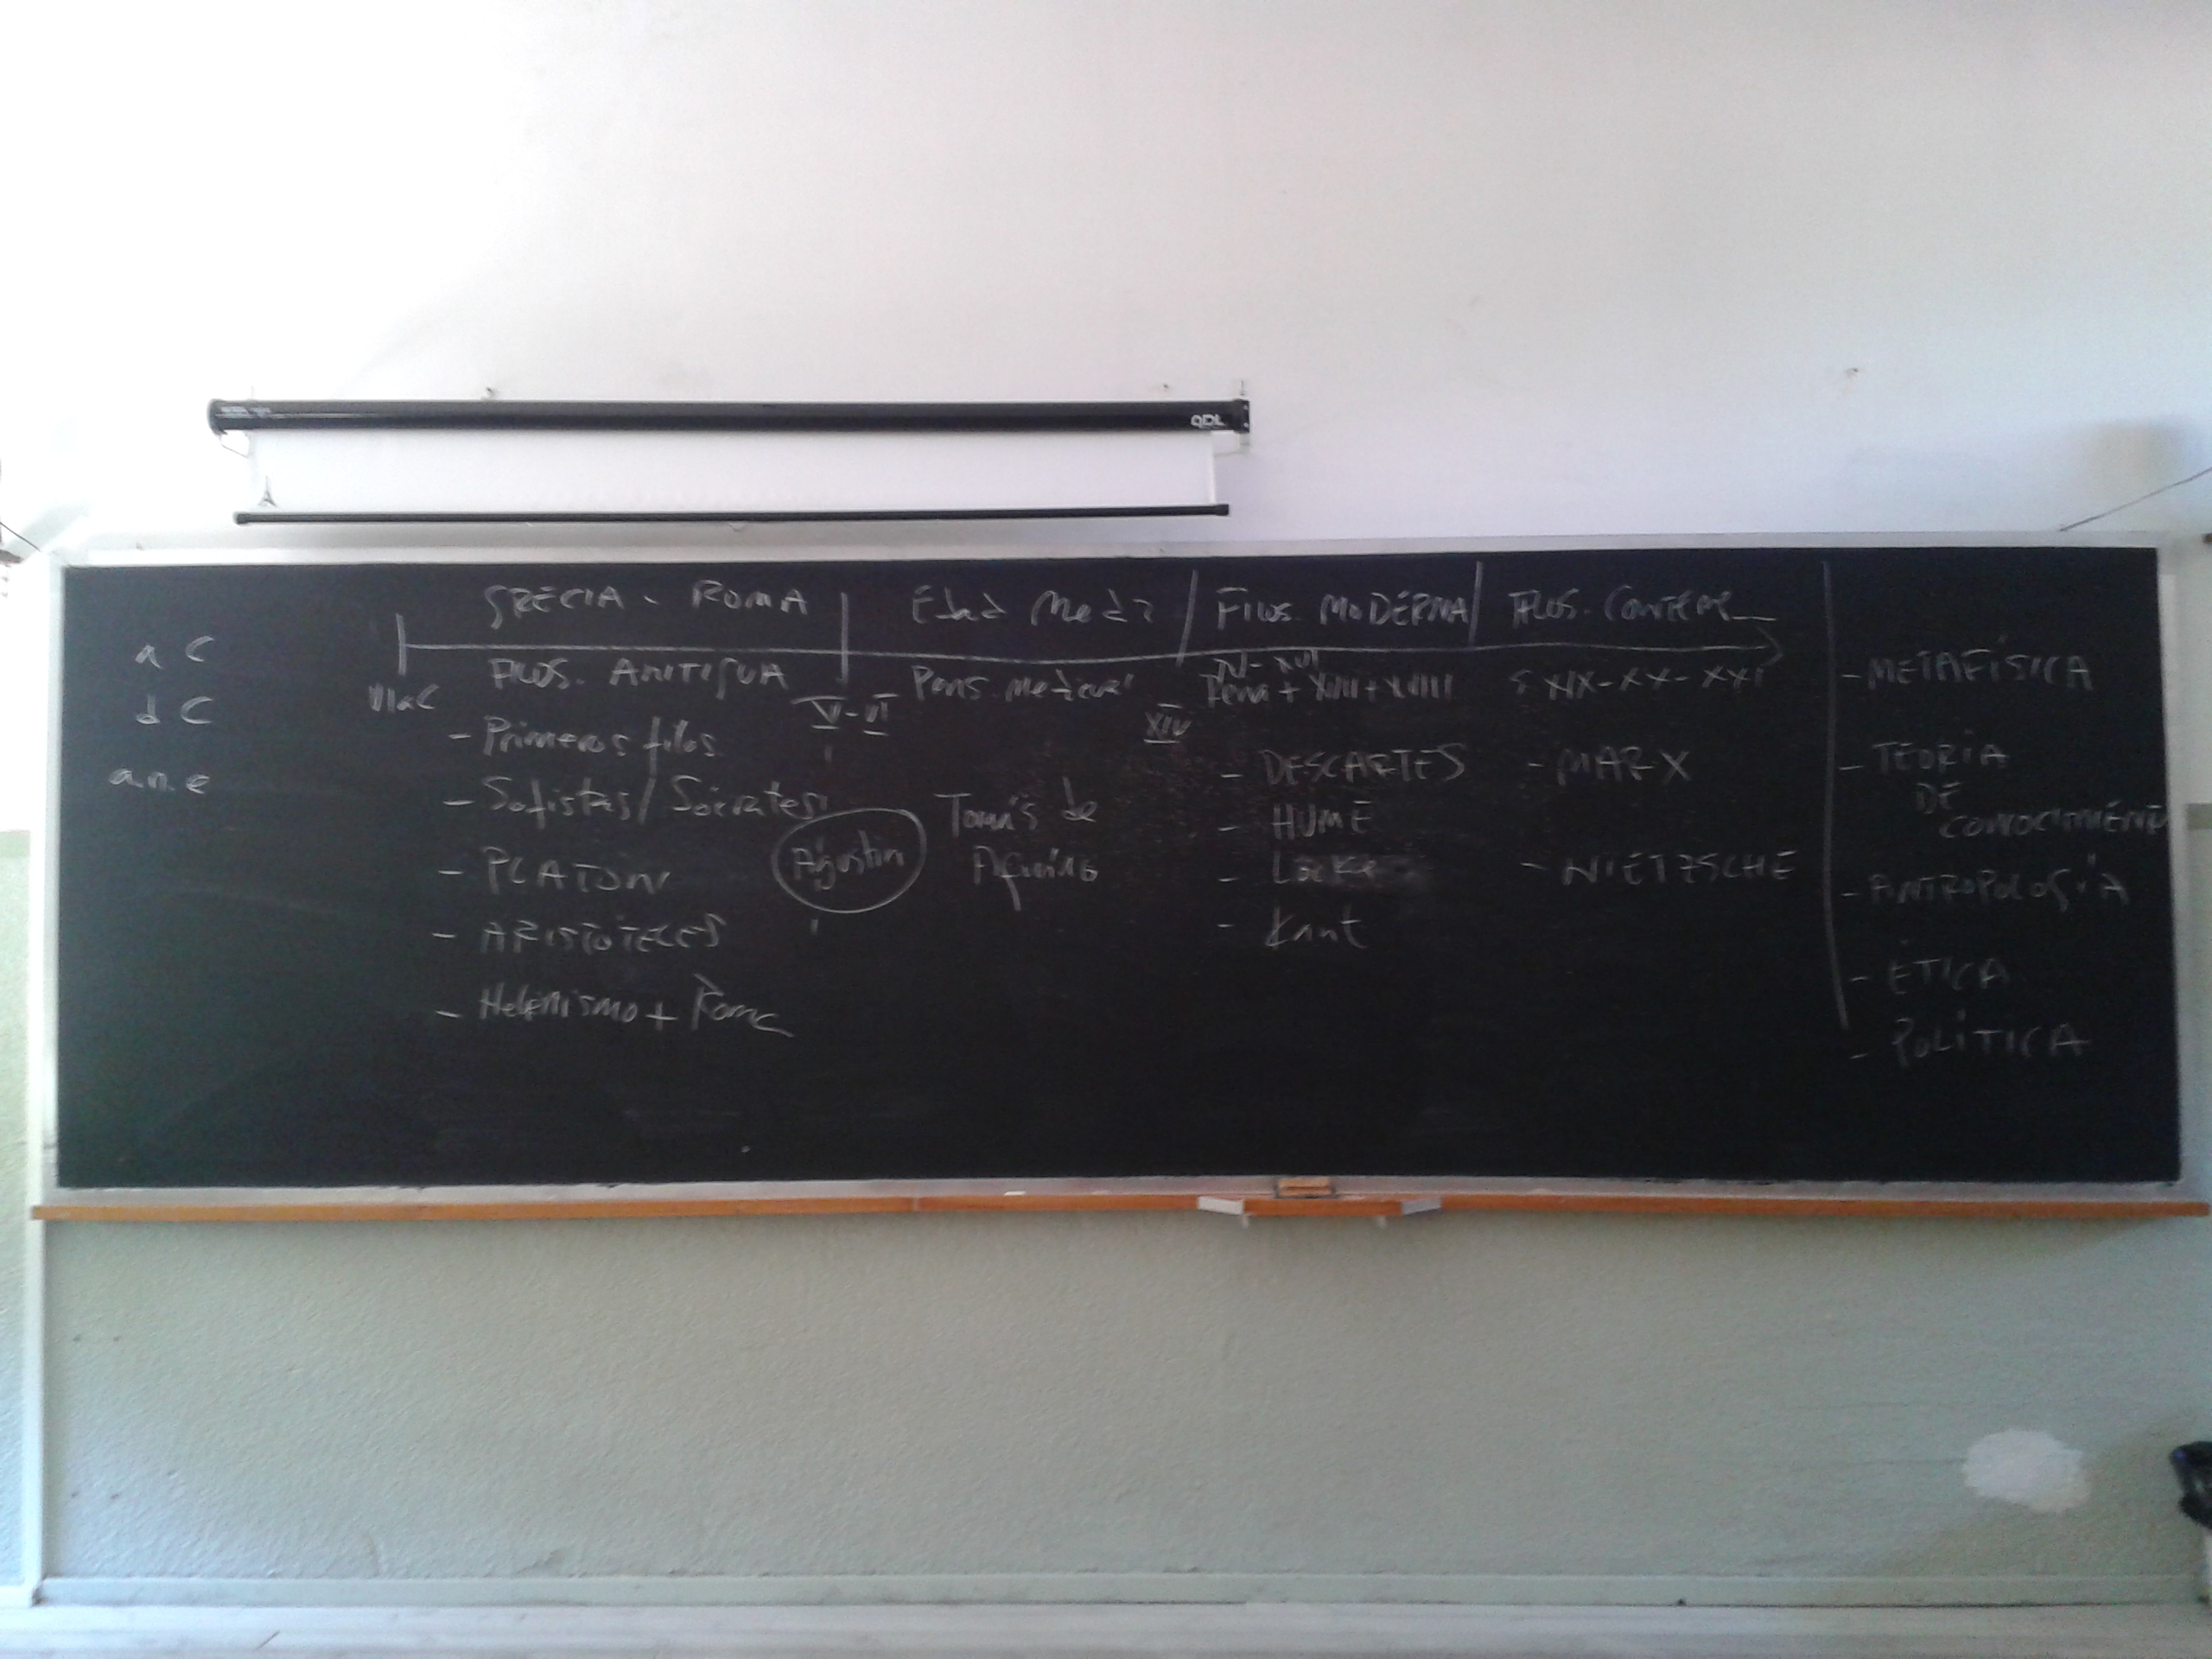 QDL
a C
d C
a.n.e
GRECIA - ROMA
VI a C
FILOS. ANTIGUA
V-VI
- Primeros filos.
- Sofistas/Sócrates
- PLATÓN
- ARISTÓTELES
- Helenismo + Roma
Agustín
Edad Media
Pens. Medieval
XIV
Tomás de
Aquino
FILOS. MODERNA
XV-XVI
Rena + XVII + XVIII
- DESCARTES
- HUME
- Locke
- Kant
FILOS. CONTEM
S XIX-XX-XXI
- MARX
- NIETZSCHE
- METAFÍSICA
- TEORÍA
DE
CONOCIMIENTO
- ANTROPOLOGÍA
- ÉTICA
- POLÍTICA